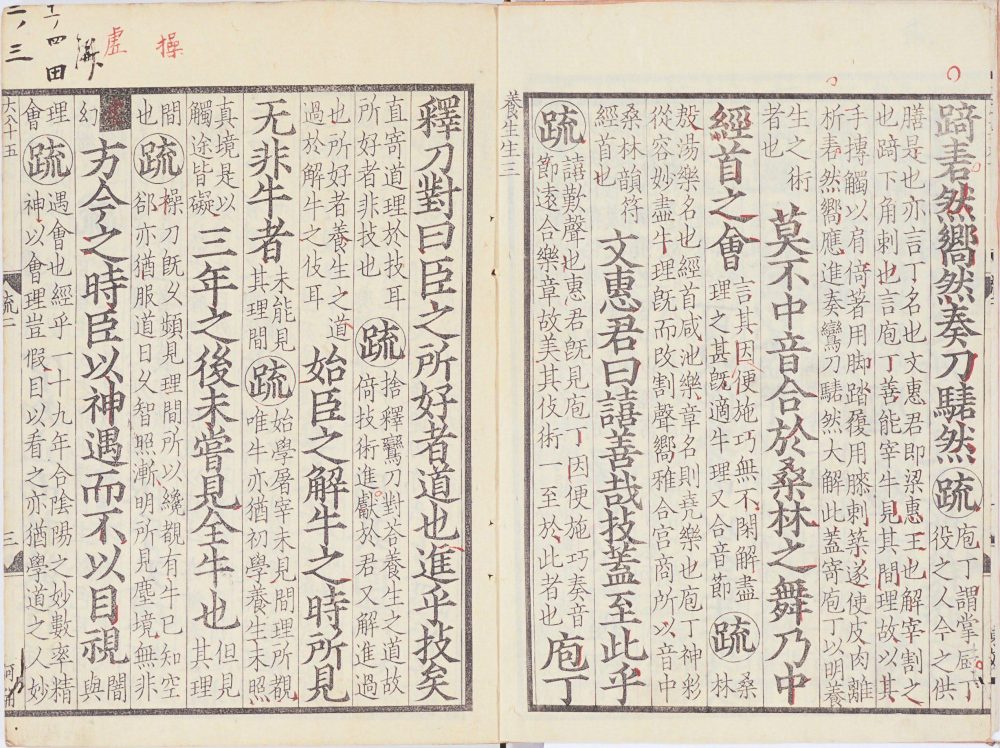 踦砉然嚮然奏刀騞然 疏 庖丁謂掌厨丁
役之人今之供
膳是也亦言丁名也文惠君即梁惠王也解宰割之
也踦下角刺也言庖丁善能宰牛見其間理故以其
手搏觸以肩倚著用脚踏履用膝刺築遂使皮肉離
析砉然嚮應進奏鸞刀騞然大解此蓋寄庖丁以明養
生之術
者也
莫不中音合於桑林之舞乃中
經首之會
言其因便施巧無不閑解盡
理之甚既適牛理又合音節
疏 桑
林
殷湯樂名也經首咸池樂章名則堯樂也庖丁神彩
從容妙盡牛理既而改割聲嚮雅合宫商所以音中
桑林韻符
經首也
文惠君曰譆善哉技蓋至此乎
疏 譆歎聲也惠君既見庖丁因便施巧奏音
節遠合樂章故美其伎術一至於此者也
庖丁
養生三
操
虚
釋刀對曰臣之所好者道也進乎技矣
直寄道理於技耳
所好者非技也
疏 捨釋鸞刀對荅養生之道故
倚技術進獻於君又解進過
也所好者養生之道
過於解牛之伎耳
始臣之解牛之時所見
无非牛者
未能見
其理間
疏 始學屠宰未見間理所覩
唯牛亦猶初學養生未照
真境是以
觸途皆礙
三年之後未嘗見全牛也
但見
其理
間
也
疏 操刀既久頻見理間所以纔覩有牛已知空
郤亦猶服道日久智照漸明所見塵境無非
幻
方今之時臣以神遇而不以目視
闇與
理
會
疏 遇會也經乎一十九年合陰陽之妙數率精
神以會理豈假目以看之亦猶學道之人妙
四田
二、三
六八十五
疏二
三